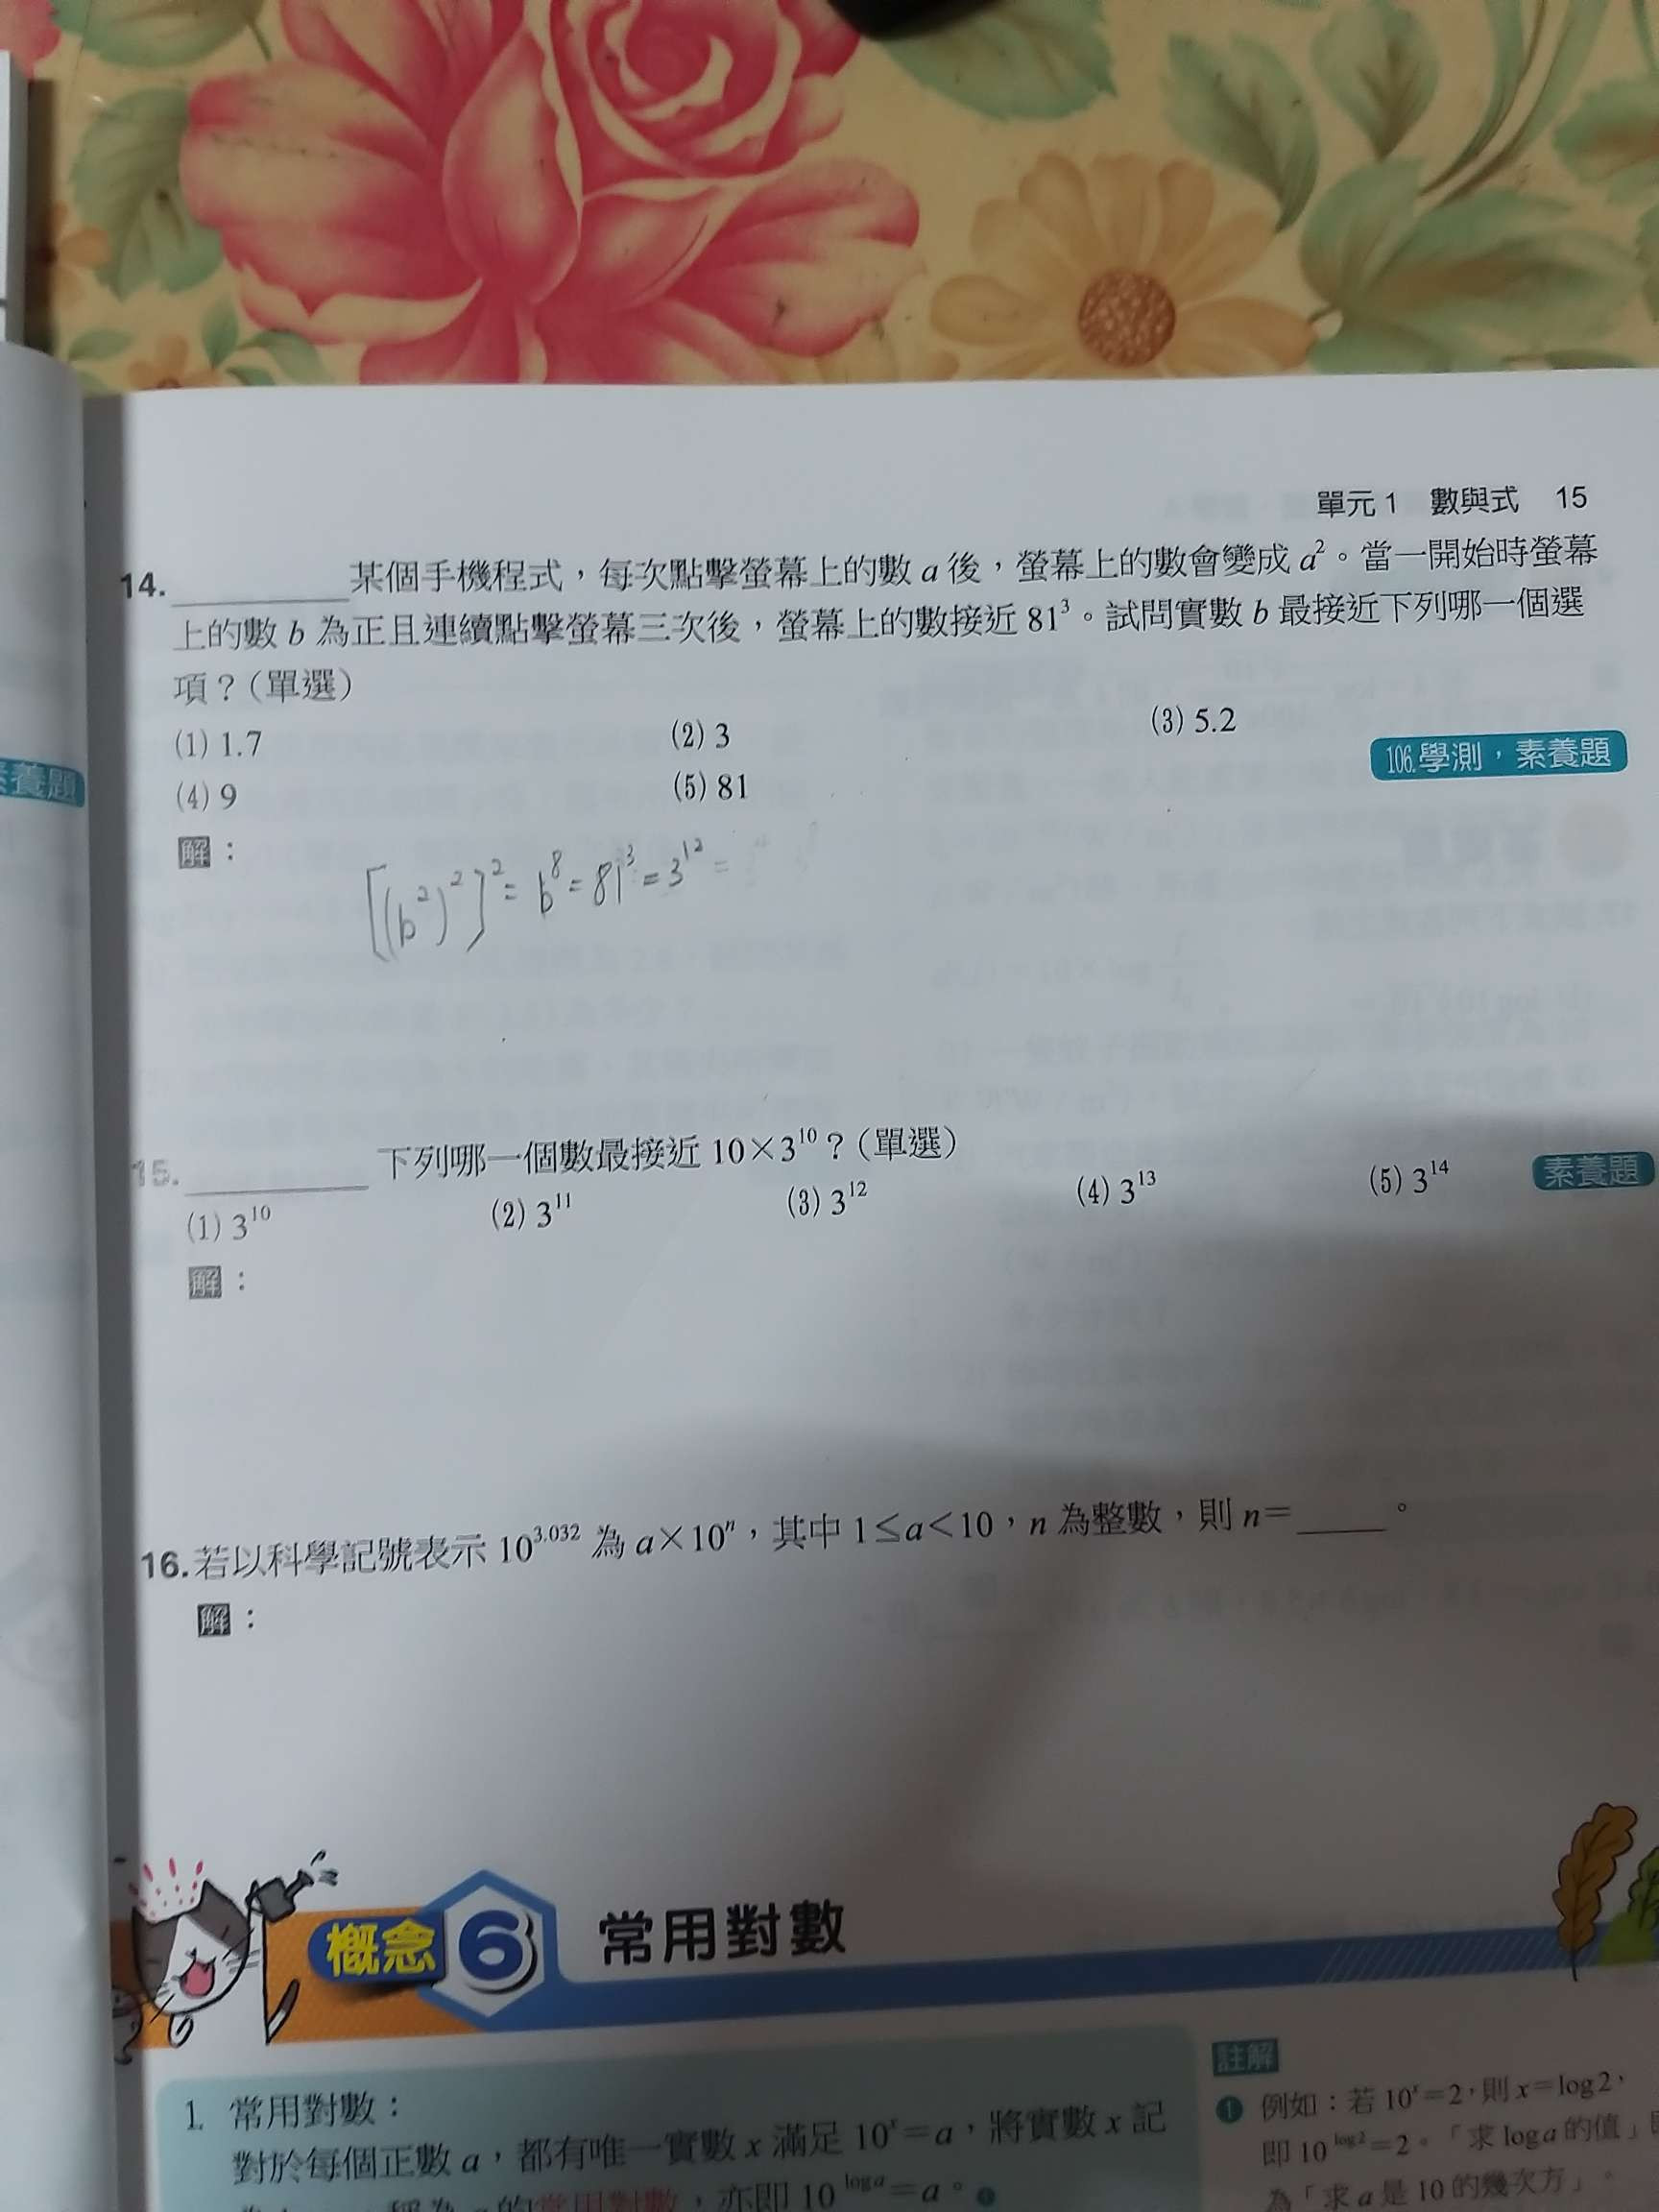 單元1 數與式 15
14. ________ 某個手機程式，每次點擊螢幕上的數 a 後，螢幕上的數會變成 a²。當一開始時螢幕
上的數 b 為正且連續點擊螢幕三次後，螢幕上的數接近 81³。試問實數 b 最接近下列哪一個選
項？（單選）
(1) 1.7 (2) 3 (3) 5.2
106.學測，素養題
(4) 9 (5) 81
解：
[(b²)²]² = b⁸ = 81³ = 3¹² =
15. ________ 下列哪一個數最接近 10×3¹⁰？（單選）
素養題
(1) 3¹⁰ (2) 3¹¹ (3) 3¹² (4) 3¹³ (5) 3¹⁴
解：
16. 若以科學記號表示 10³·⁰³² 為 a×10ⁿ，其中 1≤a<10，n 為整數，則 n=____。
解：
概念 6 常用對數
1. 常用對數：
對於每個正數 a，都有唯一實數 x 滿足 10ˣ=a，將實數 x 記
的常用對數，亦即 10^(log a)=a。❶
註解
❶ 例如：若 10ˣ=2，則 x=log2，
即 10^(log2)=2。「求 log a 的值」
為「求 a 是 10 的幾次方」。
素養題